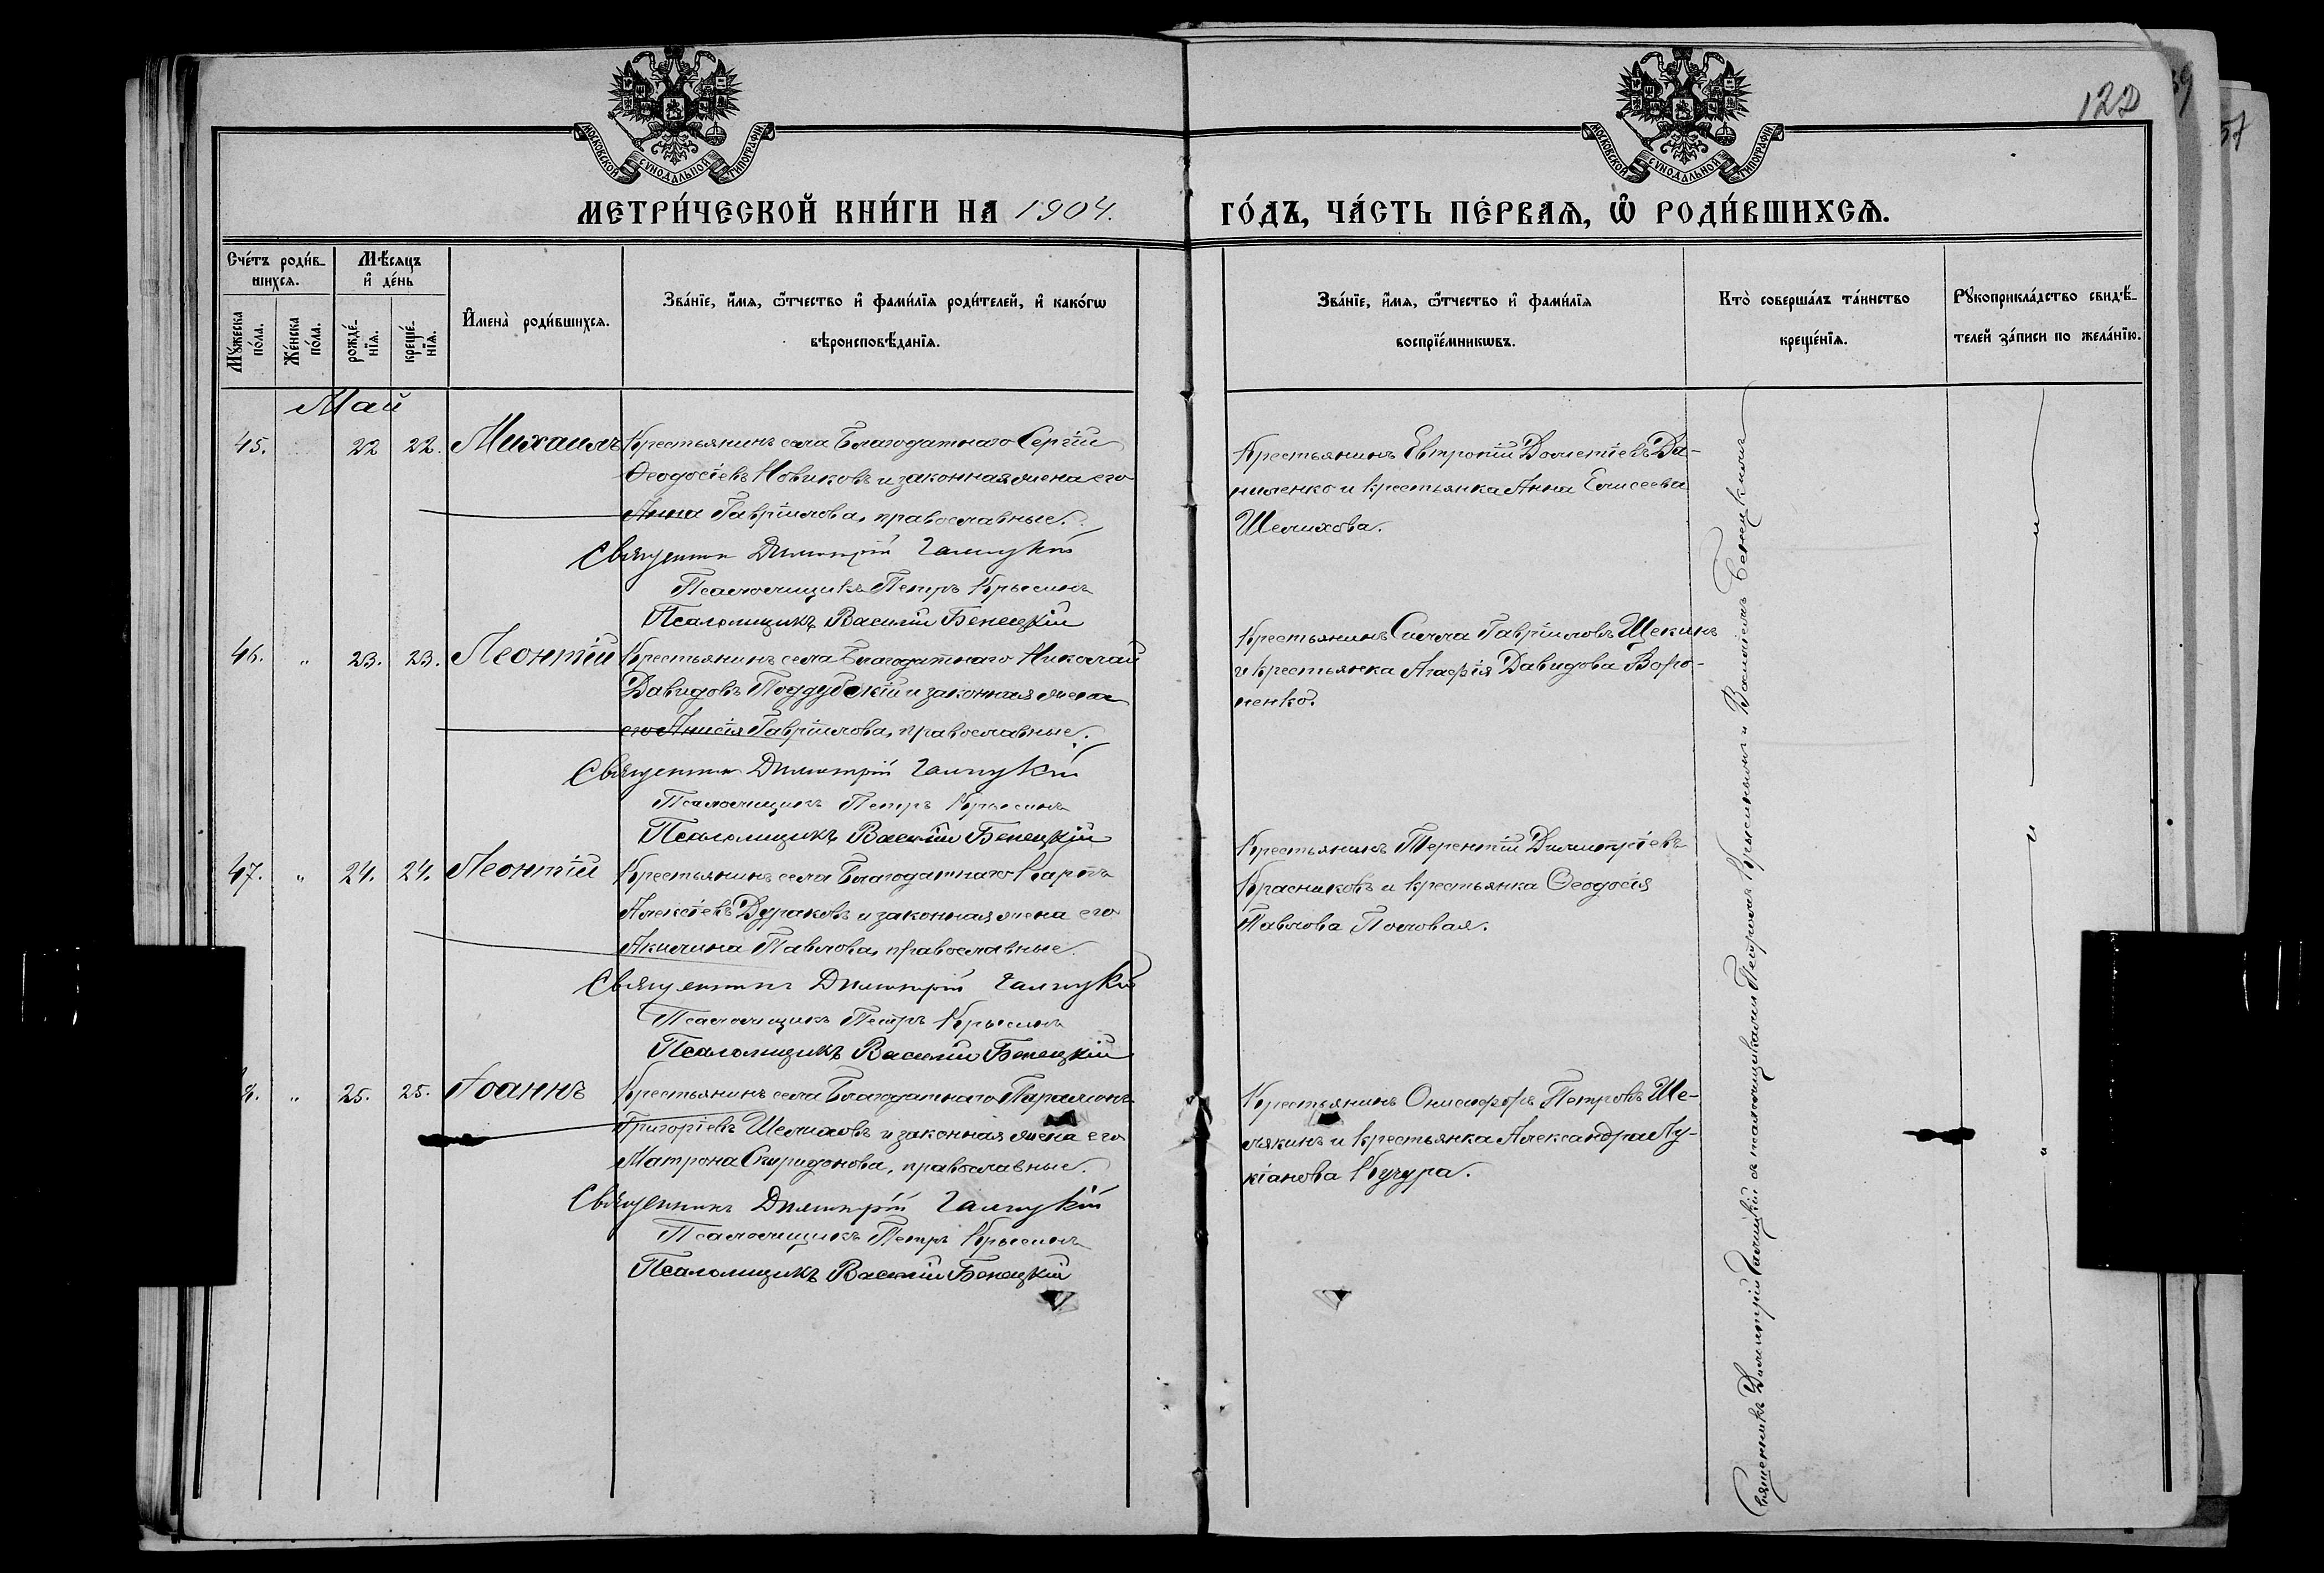 МОСКОВСКОЙ СѴНОДАЛЬНОЙ ТИПОГРАФІИ
МОСКОВСКОЙ СѴНОДАЛЬНОЙ ТИПОГРАФІИ
122
МЕТРИ́ЧЕСКОЙ КНИ́ГИ НА 1904.
ГО́ДЪ, ЧА́СТЬ ПЕ́РВАѦ, Ѽ РОДИ́ВШИХСѦ.
Сче́тъ роди́в-
шихсѧ.
Мꙋ́жеска
по́ла.
Же́нска
по́ла.
Мѣ́сяцъ
и҆ де́нь
рожде́-
нїѧ.
креще́-
нїѧ.
И҆мена̀ роди́вшихсѧ.
Зва́нїе, и҆́мѧ, ѻ҆́тчество и҆ фами́лїѧ роди́телей, и҆ како́гѡ
вѣроисповѣ́данїѧ.
Зва́нїе, и҆́мѧ, ѻ҆́тчество и҆ фами́лїѧ
воспрїе́мникѡвъ.
Кто̀ соверша́лъ та́инство
креще́нїѧ.
Рꙋкоприкла́дство свидѣ́-
телей за́писи по жела́нїю.
Май
45. 22 22. Михаилъ
Крестьянинъ села Благодатнаго Сергій
Ѳеодосіевъ Новиковъ и законная жена его
Анна Гавріилова, православные.
Священникъ Димитрій Галицкій
Псаломщикъ Петръ Крысинъ
Псаломщикъ Василій Бенецкій
Крестьянинъ Евтропій Дометіевъ Да-
ниленко и крестьянка Анна Елисеева
Шелихова.
46. " 23. 23. Леонтій
Крестьянинъ села Благодатнаго Николай
Давидовъ Поддубскій и законная жена
его Анисія Гавріилова, православные.
Священникъ Димитрій Галицкій
Псаломщикъ Петръ Крысинъ
Псаломщикъ Василій Бенецкій
Крестьянинъ Силла Гавріиловъ Щекинъ
и крестьянка Агафія Давидова Воро-
ненко.
47. " 24. 24. Леонтій
Крестьянинъ села Благодатнаго Карпъ
Алексіевъ Дураковъ и законная жена его
Акилина Павлова, православные.
Священникъ Димитрій Галицкій
Псаломщикъ Петръ Крысинъ
Псаломщикъ Василій Бенецкій
Крестьянинъ Терентій Димитріевъ
Красниковъ и крестьянка Ѳеодосія
Павлова Половая.
8. " 25. 25. Іоаннъ
Крестьянинъ села Благодатнаго Парамонъ
Григоріевъ Шелиховъ и законная жена его
Матрона Спиридонова, православные.
Священникъ Димитрій Галицкій
Псаломщикъ Петръ Крысинъ
Псаломщикъ Василій Бенецкій
Крестьянинъ Онисифоръ Петровъ Ше-
лякинъ и крестьянка Александра Лу-
кіанова Кучура.
Священникъ Димитрій Галицкій съ псаломщиками Петромъ Крысинымъ и Василіемъ Бенецкимъ